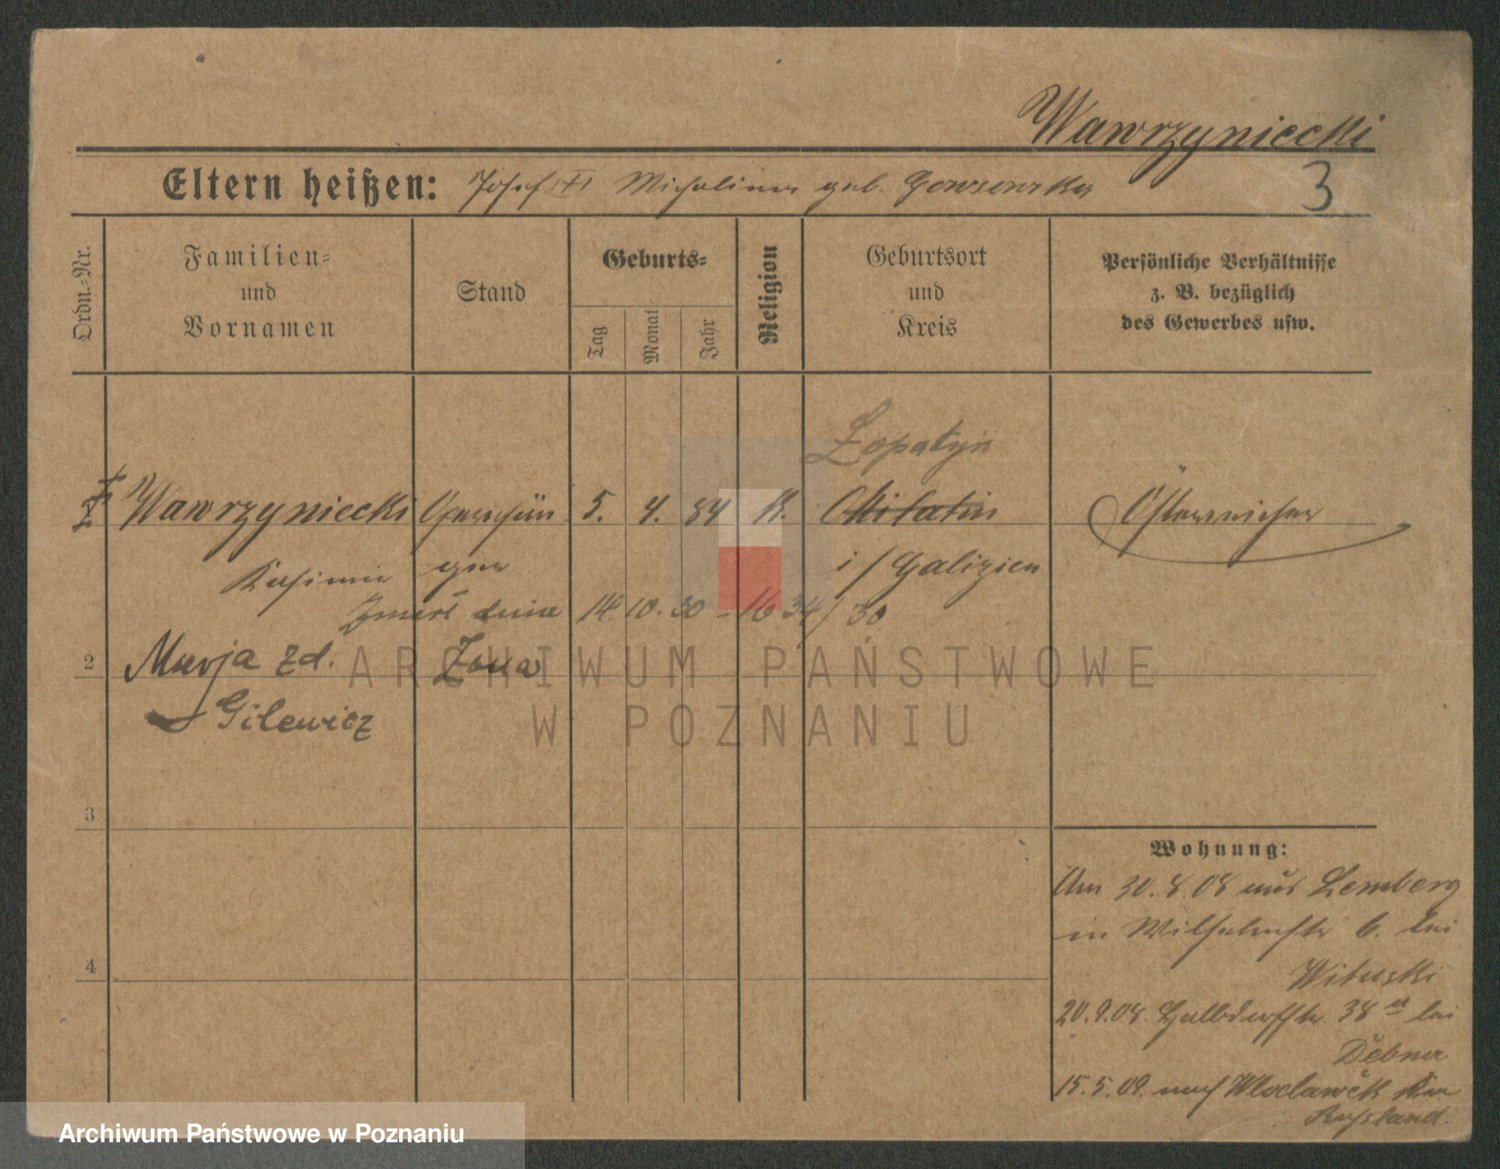 Wawrzyniecki
3
Eltern heißen: Josef Michalina geb.
Ordn.-Nr.
Familien-
und
Vornamen
Stand
Geburts-
Tag
Monat
Jahr
Religion
Geburtsort
und
Kreis
Persönliche Verhältnisse
z. B. bezüglich
des Gewerbes usw.
Łopatyn
Wawrzyniecki 5. 4. 84 K. Milatin Österreicher
Kasimir i/Galizien
14. 10. 30 - 16 34/30
2 Marja zd. Żona
Gilewicz
ARCHIWUM PAŃSTWOWE
W POZNANIU
3
4
Wohnung:
Am 30.8.08 aus Lemberg
in Wilhelmstr 6. bei
Wituski
20.9.08. Halbdorfstr 38 bei
Debner
15.5.09. nach Wloclawek
Russland.
Archiwum Państwowe w Poznaniu